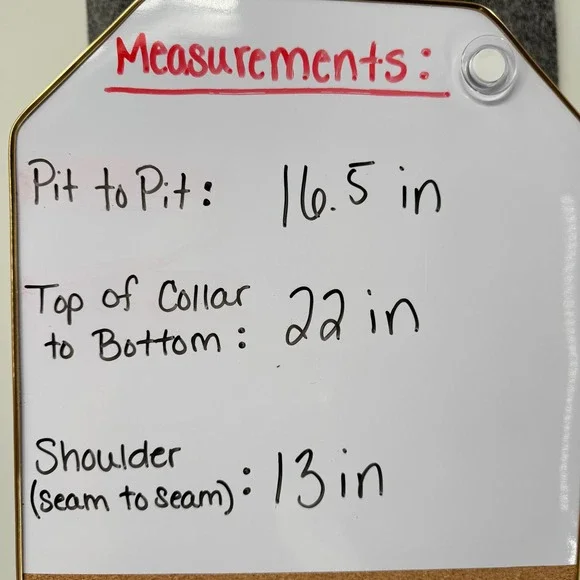 Measurements:
Pit to Pit: 16.5 in
Top of Collar
to Bottom: 22 in
Shoulder
(seam to seam): 13 in